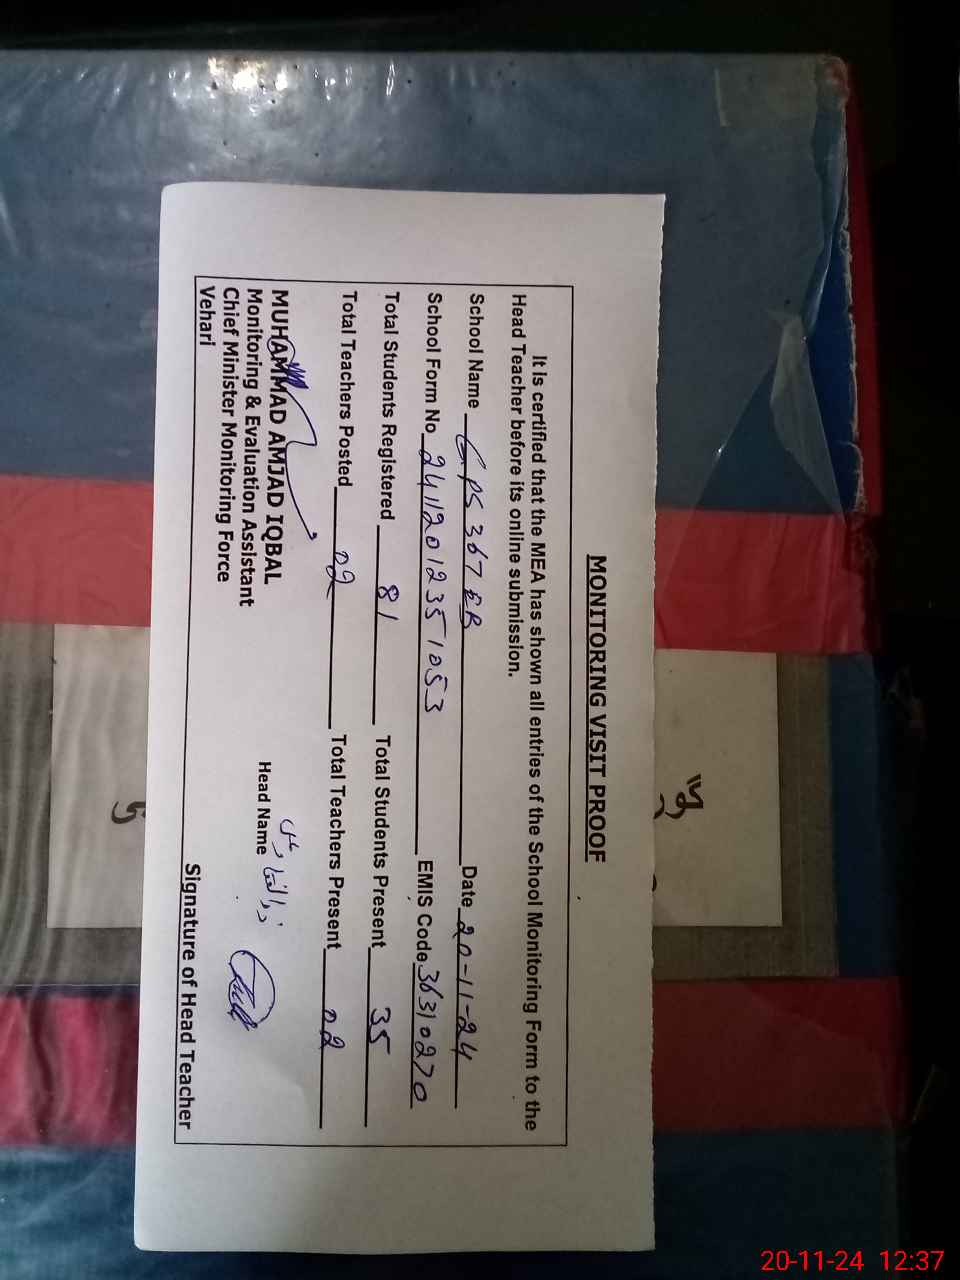 MONITORING VISIT PROOF
It is certified that the MEA has shown all entries of the School Monitoring Form to the
Head Teacher before its online submission.
School Name GPS 367 EB Date 20-11-24
School Form No 241120123510 53 EMIS Code 36310270
Total Students Registered 81 Total Students Present 35
Total Teachers Posted 02 Total Teachers Present 02
MUHAMMAD AMJAD IQBAL
Monitoring & Evaluation Assistant
Chief Minister Monitoring Force
Vehari
Head Name
Signature of Head Teacher
20-11-24 12:37